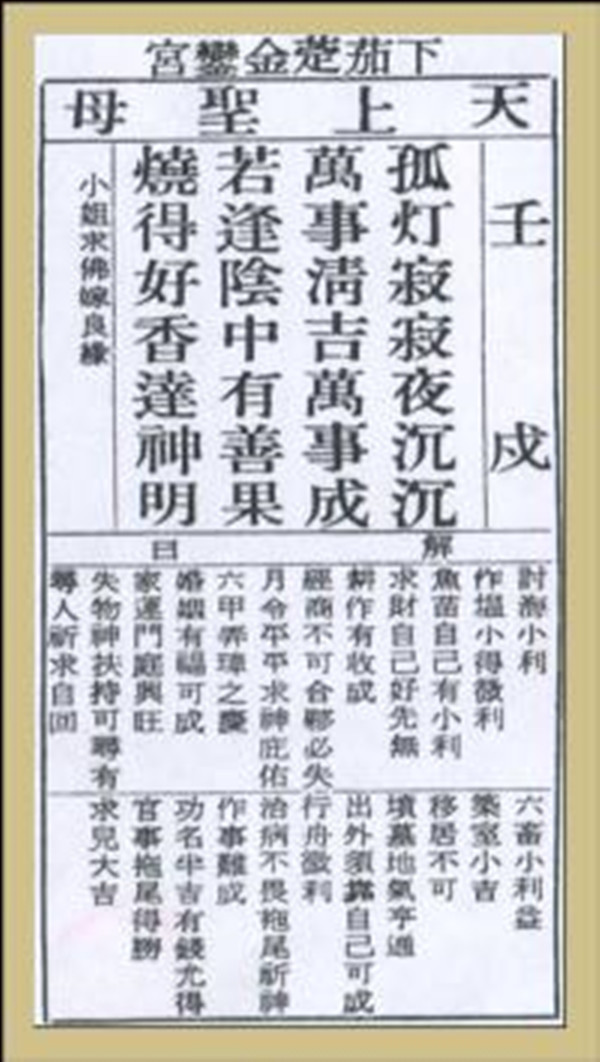 下茄萣金鑾宮
天上聖母
壬戌
孤灯寂寂夜沉沉
萬事清吉萬事成
若逢陰中有善果
燒得好香達神明
小姐求佛嫁良緣
解曰
討海小利
作塭小得微利
魚苗自己有小利
求財自己好先無
耕作有收成
經商不可合夥必失
月令平平求神庇佑
六甲弄璋之慶
婚姻有福可成
家運門庭興旺
失物神扶持可尋有
尋人祈求自回
六畜小利益
築室小吉
移居不可
墳墓地氣亨通
出外須靠自己可成
行舟微利
治病不畏拖尾祈神
作事難成
功名半吉有錢尤得
官事拖尾得勝
求兒大吉